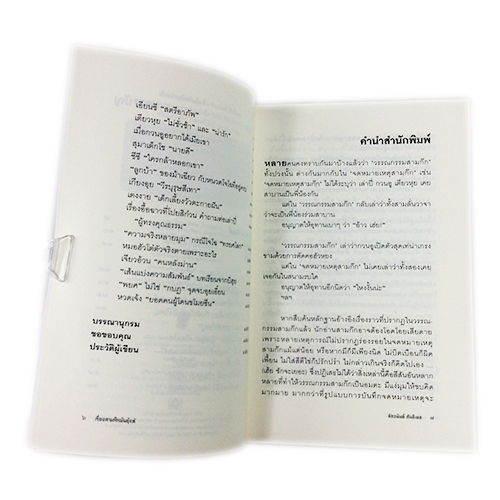 เอียนซี "สตรีอาภัพ"
เตียวหุย "ไม่ชั่วช้า" และ "น่ารัก"
เมื่อกวนอูอยากได้เมียเขา
สุมาเต็กโช "นายดี"
ซีซี "ใครกล้าหลอกเขา"
"ลูกบ้า" ของม้าเฉียว กับหนวดโจโฉที่
เกียงอุย "วีรบุรุษสีเทา"
เตงงาย "เด็กเลี้ยงวัว
เรื่องอื้อฉาวที่ไปยสิก๋วน คำถามต่อเล่าปี่
"ผู้ทรงคุณธรรม"
"ความจริงหลายมุม" กรณีโจโฉ
หมอฮัวโต๋ตัวจริงตายเพราะอะไร
เจียวอ้วน "คนหลังม่าน"
"เส้นแบ่งความสัมพันธ์" บทเรียนจากยีสูย
"พยศ" ไม่ใช่ "กบฏ" จุดจบอุยเอี๋ยน
หวดเจ้ง "ยอดคนผู้โดนขโมยซีน"
บรรณานุกรม
ขอขอบคุณ
ประวัติผู้เขียน
คำนำสำนักพิมพ์
หลายคนคงทราบกันมาบ้างแล้วว่า "วรรณกรรมสามก๊ก"
ทั้งปวงนั้น ต่างกันมากกับใน "จดหมายเหตุสามก๊ก" เช่น
"จดหมายเหตุสามก๊ก" ไม่ได้ระบุว่า เล่าปี่ กวนอู เตียวหุย เคย
สาบานเป็นพี่น้องกัน
แต่ใน "วรรณกรรมสามก๊ก" กลับเล่าว่าทั้งสามล้วนวาจา
ว่าจะเป็นพี่น้องร่วมสาบาน
อนุญาตให้อุทานเบาๆ ว่า "อ้าว เฮ่ย!"
"วรรณกรรมสามก๊ก" เล่าว่ากวนอูเปิดตัวสุดเท่น่าเกรง
ขามด้วยการตัดคอฮัวหยง
แต่ใน "จดหมายเหตุสามก๊ก" ไม่เคยเล่าว่าทั้งสองเคย
เจอกันในสนามรบใด
อนุญาตให้อุทานอีกนิดว่า "ไหงงั้นน่ะ"
ฯลฯ
หากสืบค้นหลักฐานอ้างอิงเรื่องราวที่ปรากฏในวรรณ-
กรรมสามก๊กแล้ว นักอ่านสามก๊กอาจต้องโอดโอยเสียดาย
เพราะปรากฏว่าเหตุการณ์ไม่น้อยไม่ปรากฏร่องรอยในจดหมายเหตุ
สามก๊กแม้แต่น้อย หรือหากมีก็มีเพียงนิด ไม่บิดเบือนก็ผิด
เพี้ยน ไม่ใส่สีตีไข่ก็ปรักปรำ ไม่เกลากลืนจริงก็คิดไปเอง